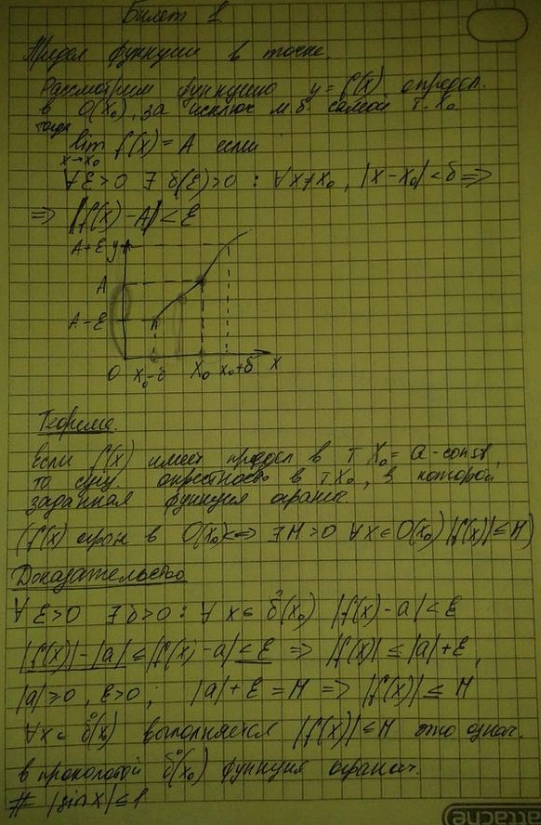 Билет 1
Предел функции в точке.
Рассмотрим функцию y = f(x) определ.
в O(x₀), за исключ м.б. самой т. x₀
тогда
lim f(x) = A если
x→x₀
∀ε>0 ∃ δ(ε)>0 : ∀x≠x₀, |x-x₀|<δ =>
=> |f(x)-A|<ε
A+ε y
A
A-ε
0 x₀-δ x₀ x₀+δ x
Теорема.
Если f(x) имеет предел в т x₀ = a-const,
то сущ. окрестность в т x₀, в которой
заданная функция огранич.
(f(x) огран в O(x₀) <=> ∃M>0 ∀x∈O(x₀) |f(x)|≤M)
Доказательство
∀ ε>0 ∃δ>0 : ∀ x∈ δ̊(x₀) |f(x)-a|<ε
|f(x)|-|a|≤|f(x)-a|<ε => |f(x)|≤|a|+ε,
|a|≥0, ε>0 ; |a|+ε=M => |f(x)|≤M
∀x∈ δ̊(x₀) выполняется |f(x)|≤M это означ.
в проколотой δ̊(x₀) функция огранич.
# |sinx|≤1
attache